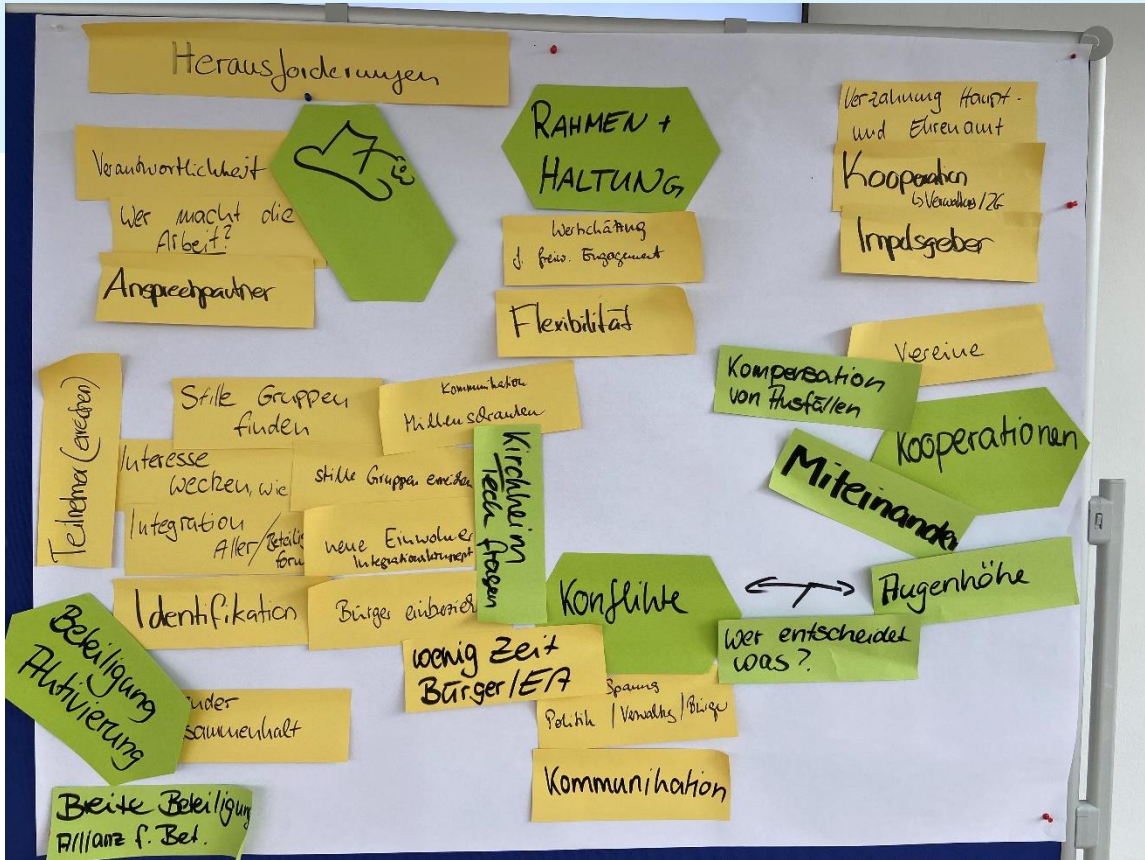 Herausforderungen
Verantwortlichkeit
Wer macht die
Arbeit?
Ansprechpartner
RAHMEN +
HALTUNG
Wertschätzung
f. freiw. Engagement
Flexibilität
Verzahnung Haupt-
und Ehrenamt
Kooperation
Impulsgeber
Vereine
Kompensation
von Ausfällen
Kooperationen
Miteinander
Augenhöhe
Wer entscheidet
was?
Konflikte
Teilnehmer (erreichen)
Stille Gruppen
finden
Kommunikation
Interesse
wecken, wie
stille Gruppen erreichen
Kirchheim
Teck fragen
Integration
Aller/
neue Einwohner
Integrationskonzept
Identifikation
Bürger
wenig Zeit
Bürger/EA
Politik / Verwaltung / Bürger
Kommunikation
Beteiligung
Aktivierung
sammenhalt
Breite Beteiligung
Allianz f. Bet.